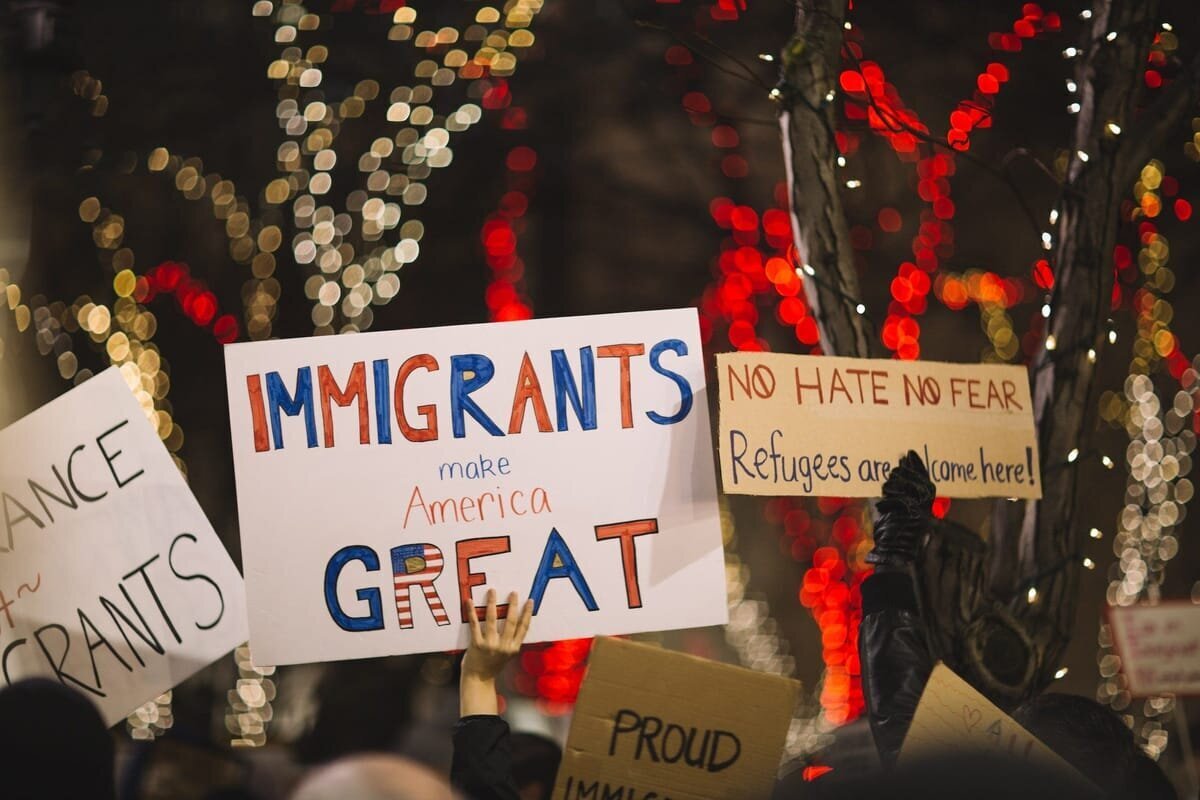 ANCE
GRANTS
IMMIGRANTS
make
America
GREAT
NO HATE NO FEAR
Refugees are here!
PROUD